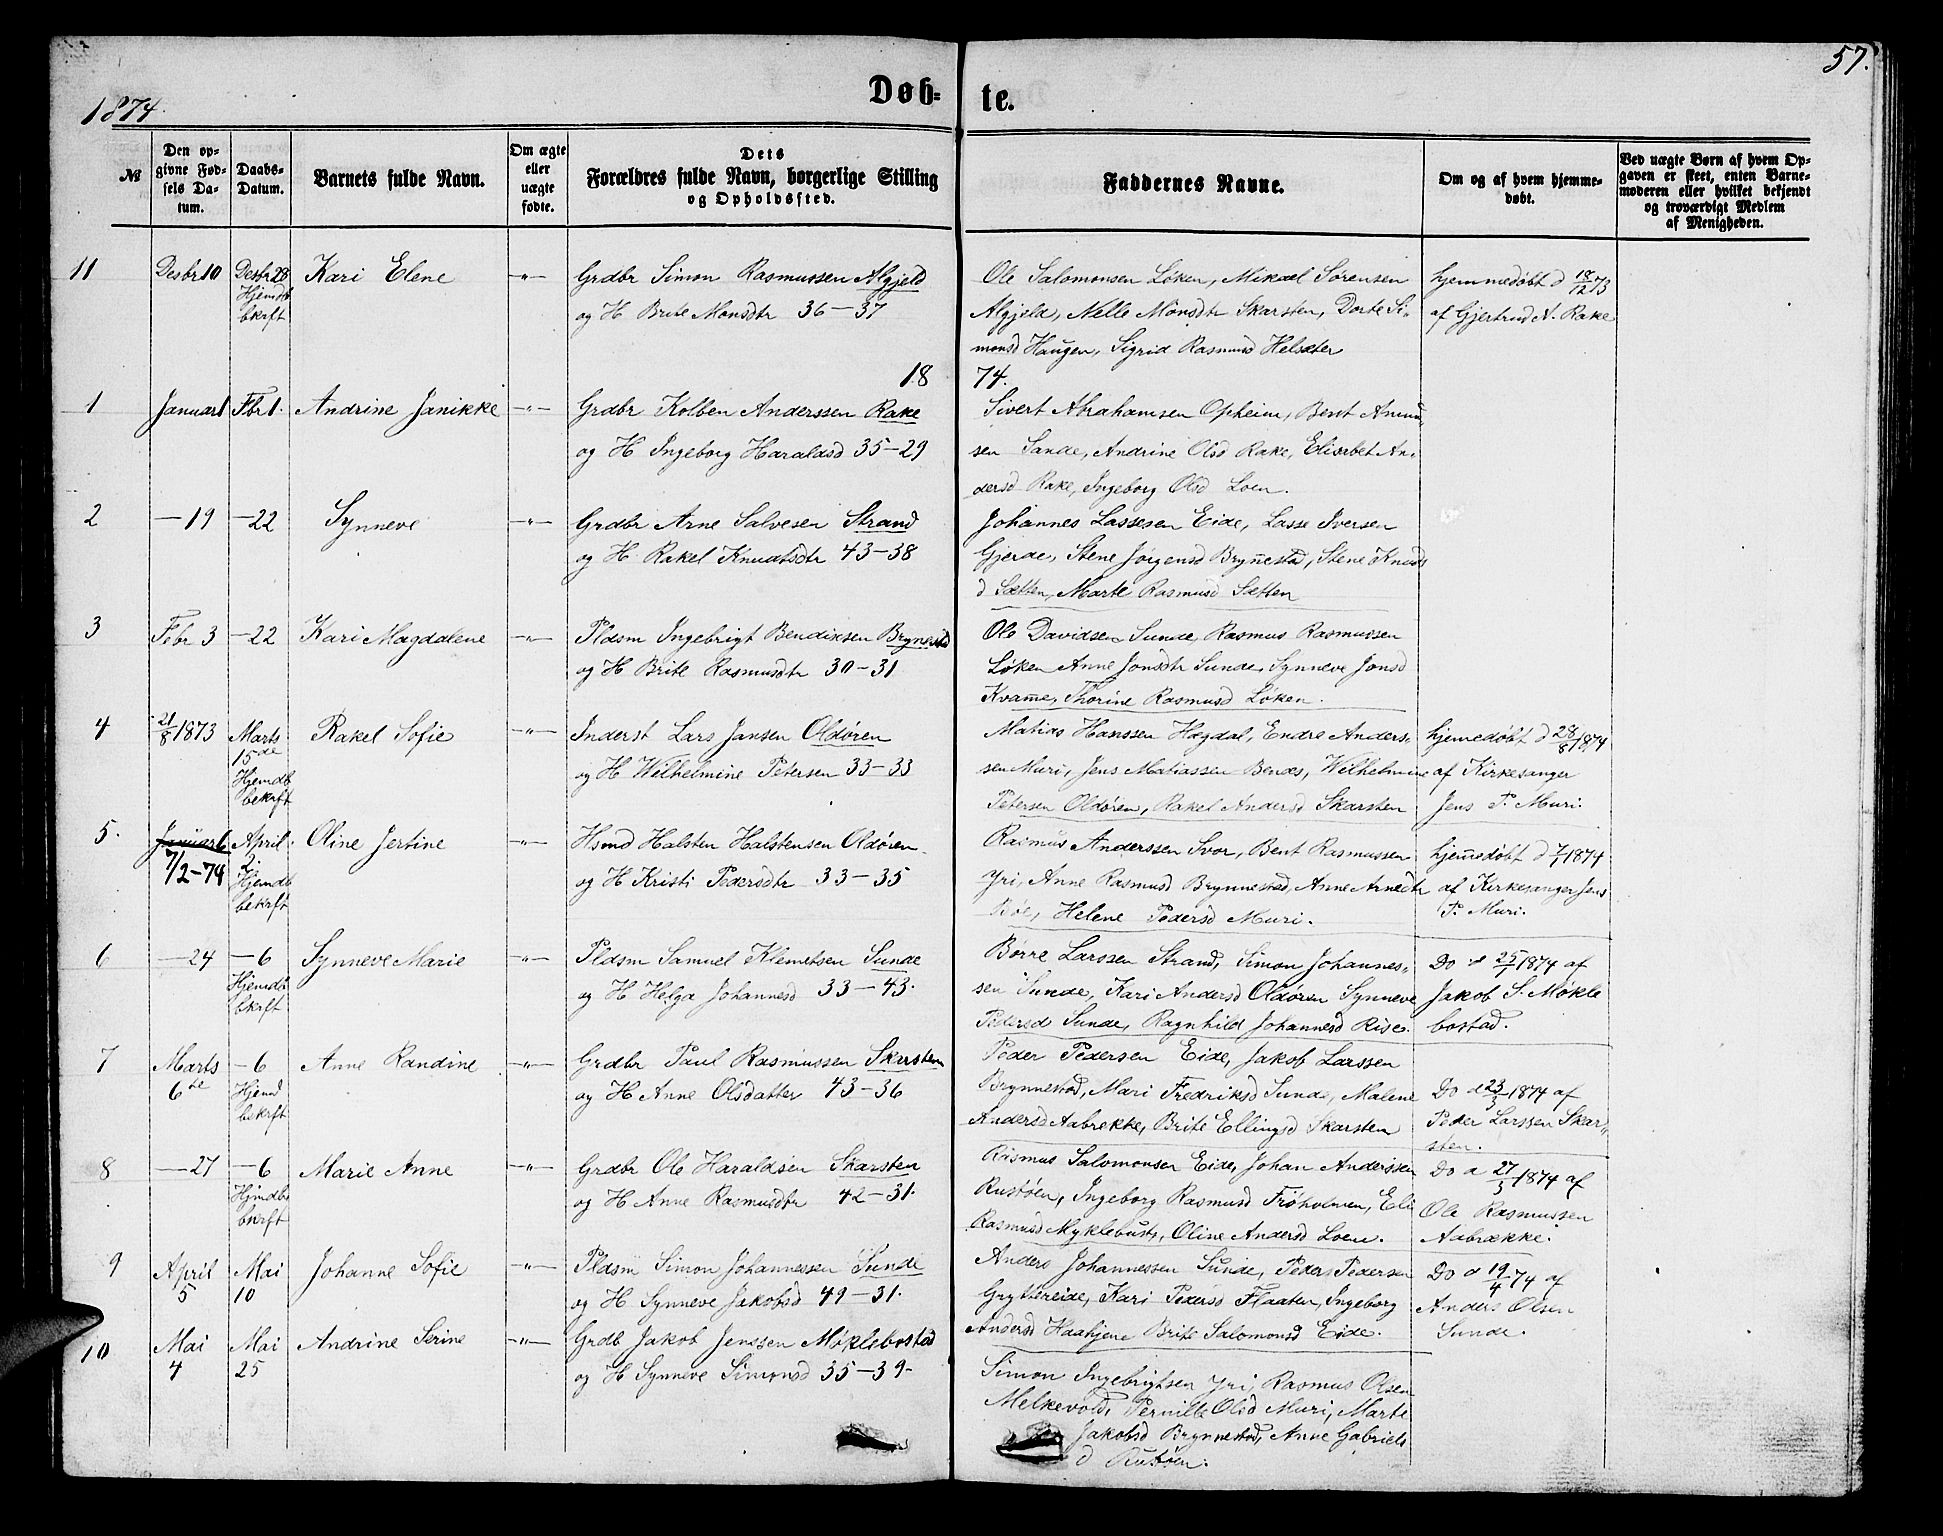 57.
1874.
Døb-te.
№
Den opgivne Fødsels Datum.
Daabs-Datum.
Barnets fulde Navn.
Om ægte eller uægte fødte.
Dets Forældres fulde Navn, borgerlige Stilling og Opholdssted.
Faddernes Navne.
Om og af hvem hjemmedøbt.
Ved uægte Børn af hvem Opgaven er skeet, enten Barnemoderen eller hvilket bekjendt og troværdigt Medlem af Menigheden.
11 Desbr 10 Desbr 28 Kari Elene —"— Grdbr Simon Rasmussen Algjeld
Hjemdb bkrft
og H Brite Monsdtr 36–37
Ole Salomonsen Løken, Mikael Sørensen
Algjeld, Nelle Monsdtr Skarsten, Dorte Si-
monsd Haugen, Sigrid Rasmusd Helsæter
hjemmedøbt d 18/12 73
af Gjertrud A. Rake
1874.
1 Januar 1 Fbr 1. Andrine Janikke —"— Grdbr Kolben Anderssen Rake
og H Ingeborg Haraldsd 35–29
Sivert Abrahamsen Opheim, Bent
sen Sande, Andrine Olsd Rake, Elisabet An-
dersd Rake, Ingeborg Olsd Loen.
2 —19 —22 Synneve —"— Grdbr Arne Salvesen Strand
og H. Rakel Knudtsdtr 43–38
Johannes Lassesen Eide, Lasse Iversen
Gjerde, Stene Jørgensd Brynnestad, Stene Knuds
d Sætten, Marte Rasmusd Sætten
3 Febr 3 —22 Kari Magdalene —"— Pldsm Ingebrigt Bendixsen Brynestd
og H Brite Rasmusdtr 30–31
Ole Davidsen Sunde, Rasmus Rasmussen
Løken Anne Jonsdtr Sunde, Synneve Jonsd
Kvame, Thorine Rasmusd Løken.
4 21/8 1873 Marts 15de Rakel Sofie —"— Inderst Lars Jansen Oldøren
Hjemdb bekrft
og H Wilhelmine Petersen 33–33
Matias Hanssen Hægdal, Endre Anders-
sen Muri, Jens Matiassen Bends, Wilhelmine
Petersen Oldøren, Rakel Andersd Skarsten
hjemedøbt d 28/8 1874
af Kirkesanger
Jens P. Muri.
5. Januar 6 April 2. Oline Jertine —"— Hsmd Halsten Halstensen Oldøren
7/2–74 Hjemdb bekrft
og H Kristi Pedersdtr 33–35
Rasmus Anderssen Svor, Bent Rasmussen
Yri, Anne Rasmusd Brynnestad, Anne Arnedtr
Bøe, Helene Pedersd Muri.
hjemedøbt d 7/1 1874
af Kirkesanger Jens
P. Muri.
6 —24 —6 Synneve Marie —"— Pldsm Samuel Klemetsen Sunde
Hjemdb bkrft
og H Helga Johannesd 33–43.
Børre Larssen Strand, Simon Johannes-
sen Sunde, Kari Andersd Oldøren Synneve
Pedersd Sunde, Ragnhild Johannesd Rise.
Do d 25/1 1874 af
Jakob S. Møkle
bostad.
7 Marts 6te —6 Anne Randine —"— Grdbr Paul Rasmussen Skarsten
Hjemd bekrft
og H Anne Olsdatter 43–36
Peder Pedersen Eide, Jakob Larssen
Brynnestad, Mari Fredriksd Sunde, Malene
Andersd Aabrekke, Brite Ellingsd Skarsten
Do d 23/3 1874 af
Peder Larssen Skar-
sten.
8 —27 —6 Marie Anne —"— Grdbr Ole Haraldsen Skarsten
Hjmdb bkrft
og H Anne Rasmusdtr 42–31.
Rasmus Salomonsen Eide, Johan Anderssen
Rustøen, Ingeborg Rasmusd Frøholmen, Eli
Rasmusd Myklebust, Oline Andersd Loen.
Do d 27/3 1874 af
Ole Rasmussen
Aabrække.
9 April 5 Mai 10 Johanne Sofie —"— Pldsm Simon Johannessen Sunde
og H Synneve Jakobsd 49–31.
Anders Johannessen Sunde, Peder Pedersen
Gryttereide, Kari Pedersd Flaaten, Ingeborg
Andersd Haahjene Brite Salomonsd Eide.
Do d 19/4 74 af
Anders Olsen
Sunde.
10 Mai 4 Mai 25 Andrine Serine —"— Grdb Jakob Jenssen Møklebostad
og H Synneve Simonsd 35–39-
Simon Ingebrigtsen Yri, Rasmus Olsen
Melkevold, Pernille Olsd Muri, Marte
Jakobsd Brynnestad, Anne Gabriels
d Rustøen.